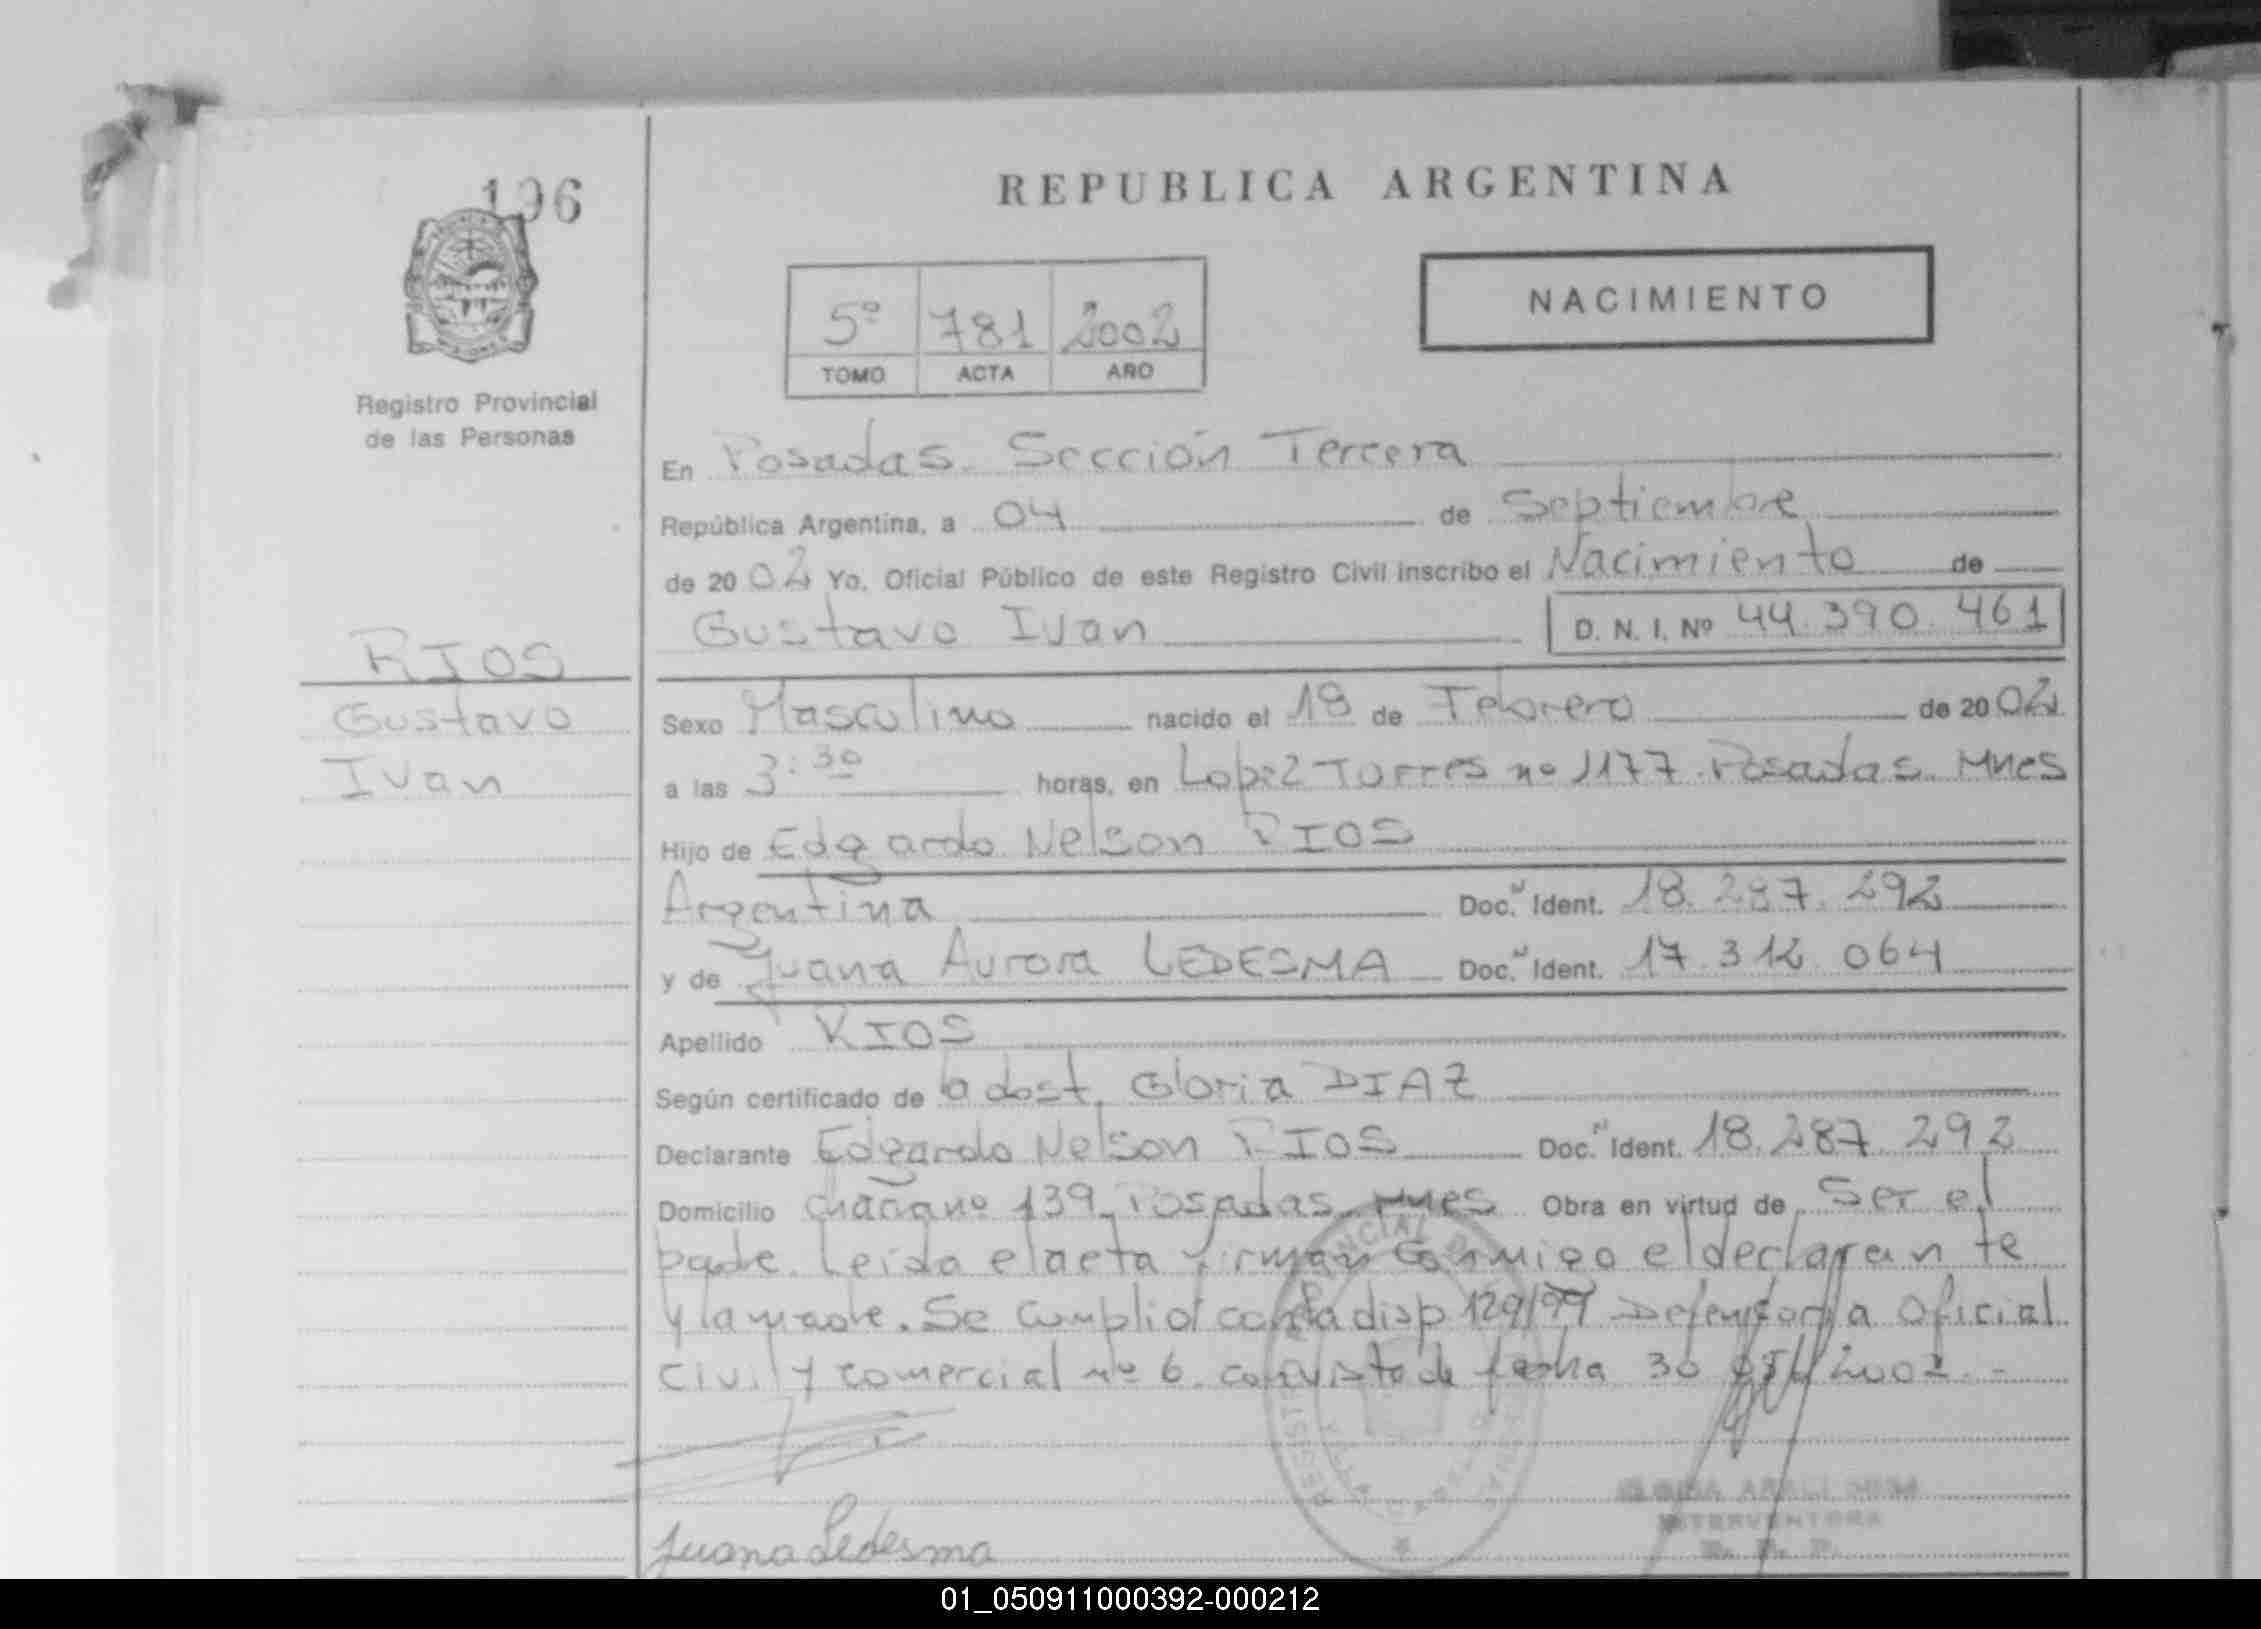 196
REPUBLICA ARGENTINA
NACIMIENTO
5º 781 2002
TOMO ACTA AÑO
Registro Provincial
de las Personas
En Posadas. Sección Tercera
República Argentina, a 04 de Septiembre
de 2002 Yo, Oficial Público de este Registro Civil inscribo el Nacimiento de
Gustavo Ivan D. N. I. Nº 44.390.461
RIOS
Gustavo
Ivan
Sexo Masculino nacido el 18 de Febrero de 2002
a las 3:30 horas, en Lopez Torres nº 1177. Posadas. Mnes
Hijo de Edgardo Nelson RIOS
Argentina Doc. Ident. 18.287.292
y de Juana Aurora LEDESMA Doc. Ident. 17.312.064
Apellido RIOS
Según certificado de obst. Gloria DIAZ
Declarante Edgardo Nelson RIOS Doc. Ident. 18.287.292
Domicilio nº 139. Posadas. Mnes Obra en virtud de Ser el
padre. Leida el acta firman conmigo el declarante
y la madre. Se cumplió con la disp 129/99 Defensoria Oficial
Civil y Comercial nº 6. con vista de fecha 30 2002.-
Juana Ledesma
INTERVENTORA
R. P. P.
01_050911000392-000212